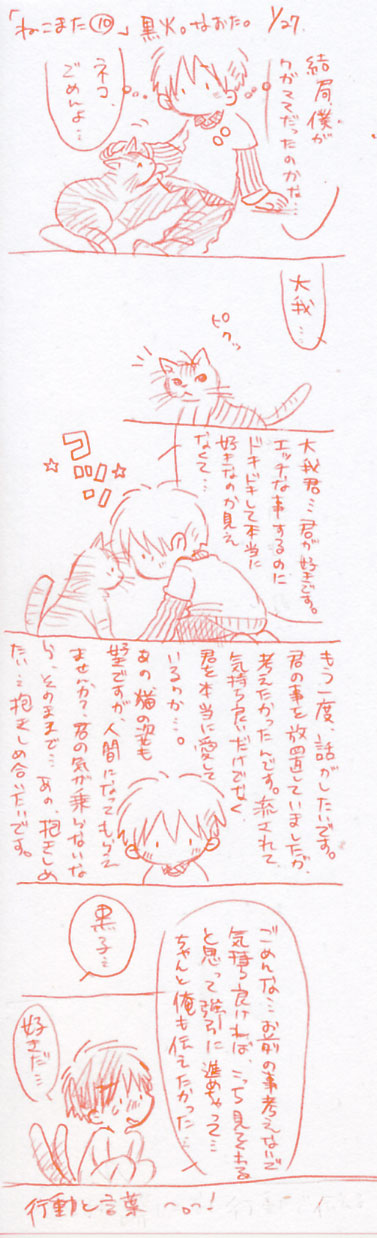 「ねこまた⑩」黒火。なおた。1/27.
結局、僕が
ワガママだったのかな…
ネコ、
ごめんよ…
大我…
ピクッ
大我君…君が好きです。
エッチな事するのに
ドキドキして本当に
好きなのか見え
なくて…
ゴツン
もう一度、話がしたいです。
君の事を放置していましたが、
考えたかったんです。流されて、
気持ち良いだけでなく、
君を本当に愛して
いるのか…。
あの、猫の姿も
堅ですが、人間になってもらえ
ませんか?君の気が乗らないな
ら、そのままで…あの、抱きしめ
たい…抱きしめ合いたいです。
ごめんな…お前の事考えないで
気持ち良ければ、こっち見てくれる
と思って強引に進めちゃって…
ちゃんと俺も伝えたかった…
黒子…
好きだ…
行動と言葉